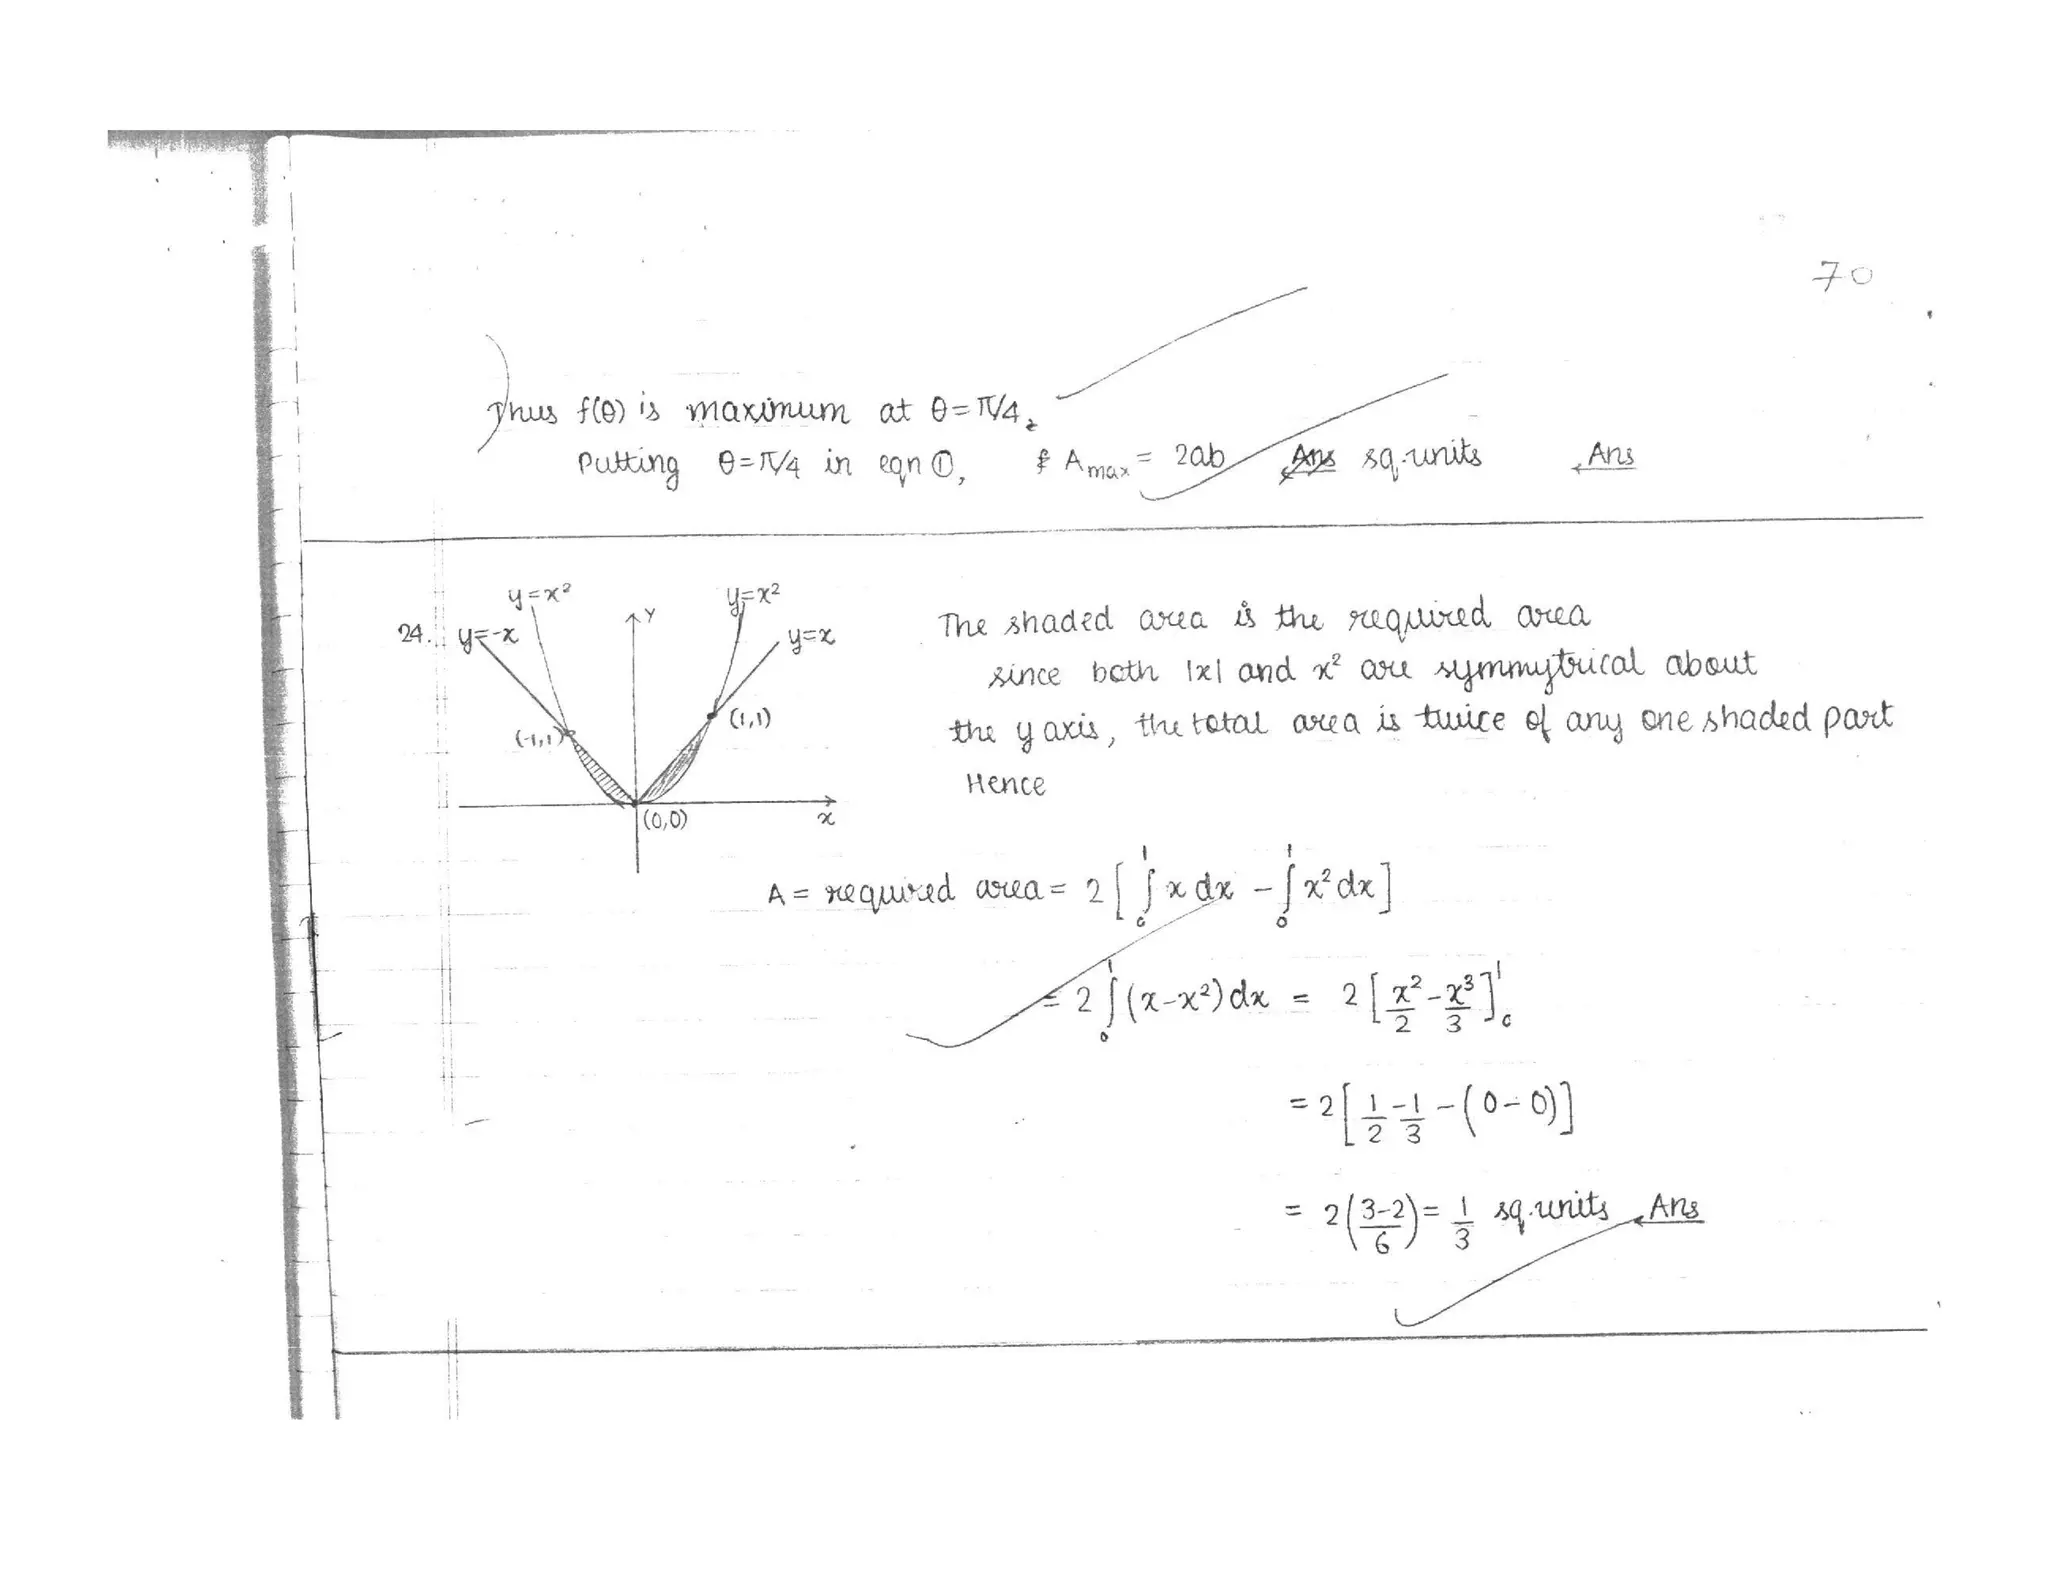 70
Thus f(θ) is maximum at θ=π/4,
Putting θ=π/4 in eqn ①, A max = 2ab Ans sq.units Ans
y=x² y=x²
24. y=-x Y y=x
(-1,1) (1,1)
(0,0) x
The shaded area is the required area
since both |x| and x² are symmytrical about
the y axis, the total area is twice of any one shaded part
Hence
A = required area = 2[∫₀¹ x dx - ∫₀¹ x² dx]
= 2∫₀¹ (x-x²)dx = 2[x²/2 - x³/3]₀¹
= 2[1/2 - 1/3 - (0-0)]
= 2(3-2/6) = 1/3 sq.units Ans